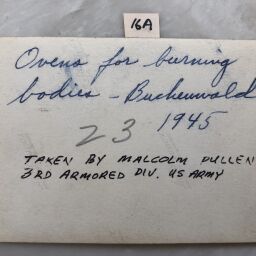 16A
Ovens for burning
bodies - Buchenwald
23 1945
TAKEN BY MALCOLM PULLEN
3RD ARMORED DIV. US ARMY